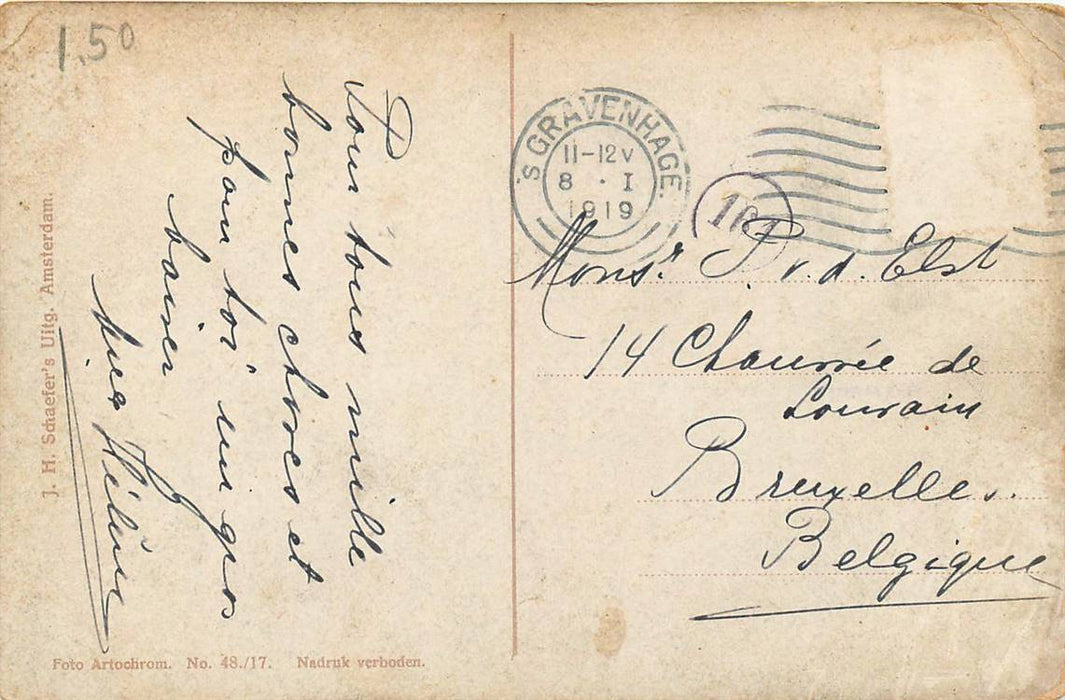 1.50
Pour tous mille
bonnes choses et
pour toi un gros
baiser
Hélène
J. H. Schaefer's Uitg. Amsterdam.
Foto Artochrom. No. 48./17. Nadruk verboden.
'S GRAVENHAGE.
11-12 V
8 . I
1919
Monsr. P. v. d. Elst
14 Chaussée de
Louvain
Bruxelles.
Belgique